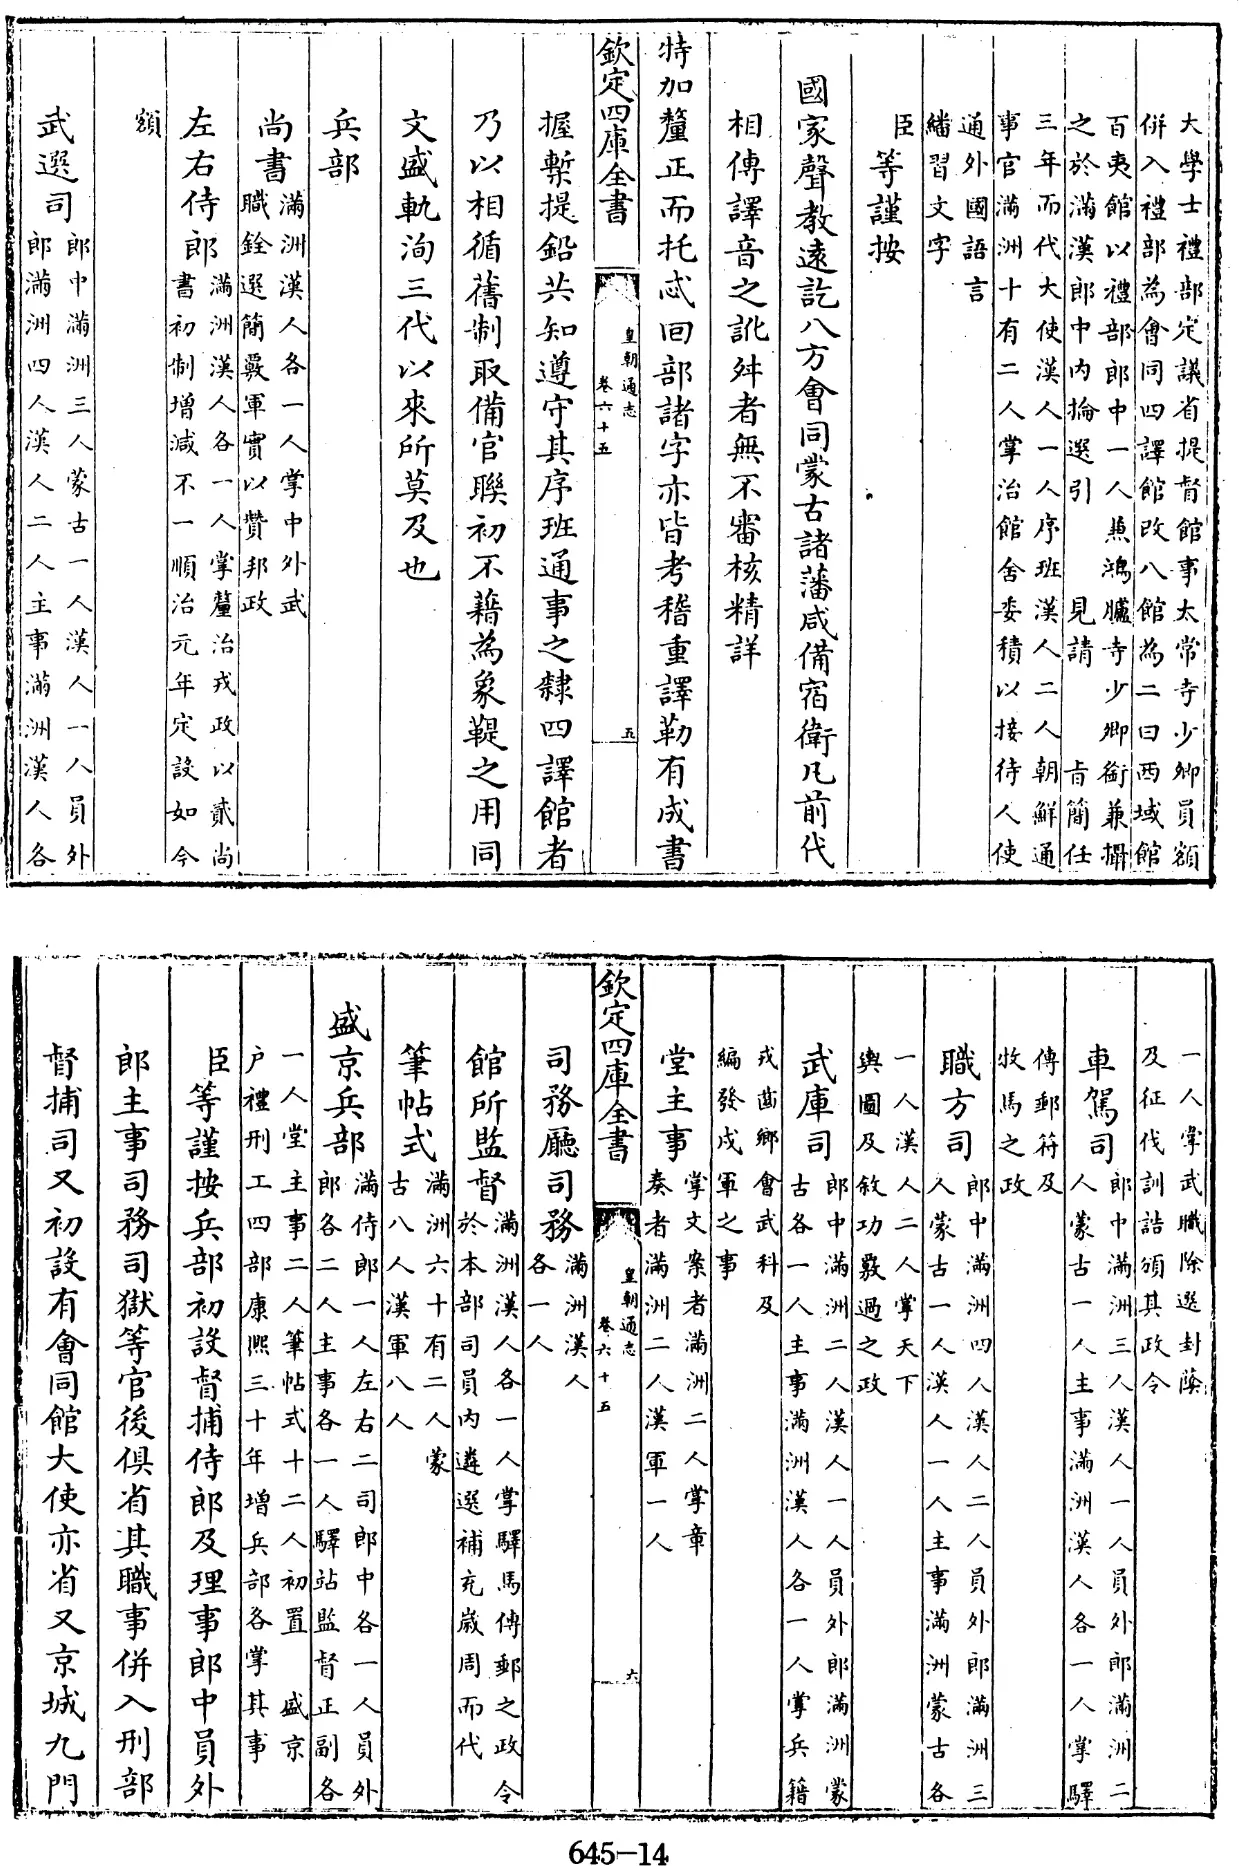 大學士禮部定議省提督館事太常寺少卿員額
併入禮部為會同四譯館改八館為二曰西域館
百夷館以禮部郎中一人兼鴻臚寺少卿銜兼攝
之於滿漢郎中内掄選引見請旨簡任
三年而代大使漢人一人序班漢人二人朝鮮通
事官滿洲十有二人掌治館舍委積以接待人使
通外國語言
繙習文字
臣等謹按
國家聲教遠訖八方會同蒙古諸藩咸備宿衛凡前代
相傳譯音之訛舛者無不審核精詳
特加釐正而托忒回部諸字亦皆考稽重譯勒有成書
欽定四庫全書
皇朝通志
卷六十五
五
握槧提鉛共知遵守其序班通事之隸四譯館者
乃以相循舊制取備官聯初不藉為象鞮之用同
文盛軌洵三代以來所莫及也
兵部
尚書滿洲漢人各一人掌中外武
職銓選簡覈軍實以贊邦政
左右侍郎滿洲漢人各一人掌釐治戎政以貳尚
書初制增減不一順治元年定設如今
額
武選司郎中滿洲三人蒙古一人漢人一人員外
郎滿洲四人漢人二人主事滿洲漢人各
一人掌武職除選封蔭
及征伐訓誥頒其政令
車駕司郎中滿洲三人漢人一人員外郎滿洲二
人蒙古一人主事滿洲漢人各一人掌驛
傳郵符及
牧馬之政
職方司郎中滿洲四人漢人二人員外郎滿洲三
人蒙古一人漢人一人主事滿洲蒙古各
一人漢人二人掌天下
輿圖及敘功覈過之政
武庫司郎中滿洲二人漢人一人員外郎滿洲蒙
古各一人主事滿洲漢人各一人掌兵籍
戎器鄉會武科及
編發戍軍之事
堂主事掌文案者滿洲二人掌章
奏者滿洲二人漢軍一人
欽定四庫全書
皇朝通志
卷六十五
六
司務廳司務滿洲漢人
各一人
館所監督滿洲漢人各一人掌驛馬傳郵之政令
於本部司員内遴選補充歲周而代
筆帖式滿洲六十有二人蒙
古八人漢軍八人
盛京兵部滿侍郎一人左右二司郎中各一人員外
郎各二人主事各一人驛站監督正副各
一人堂主事二人筆帖式十二人初置盛京
户禮刑工四部康熙三十年增兵部各掌其事
臣等謹按兵部初設督捕侍郎及理事郎中員外
郎主事司務司獄等官後俱省其職事併入刑部
督捕司又初設有會同館大使亦省又京城九門
645-14